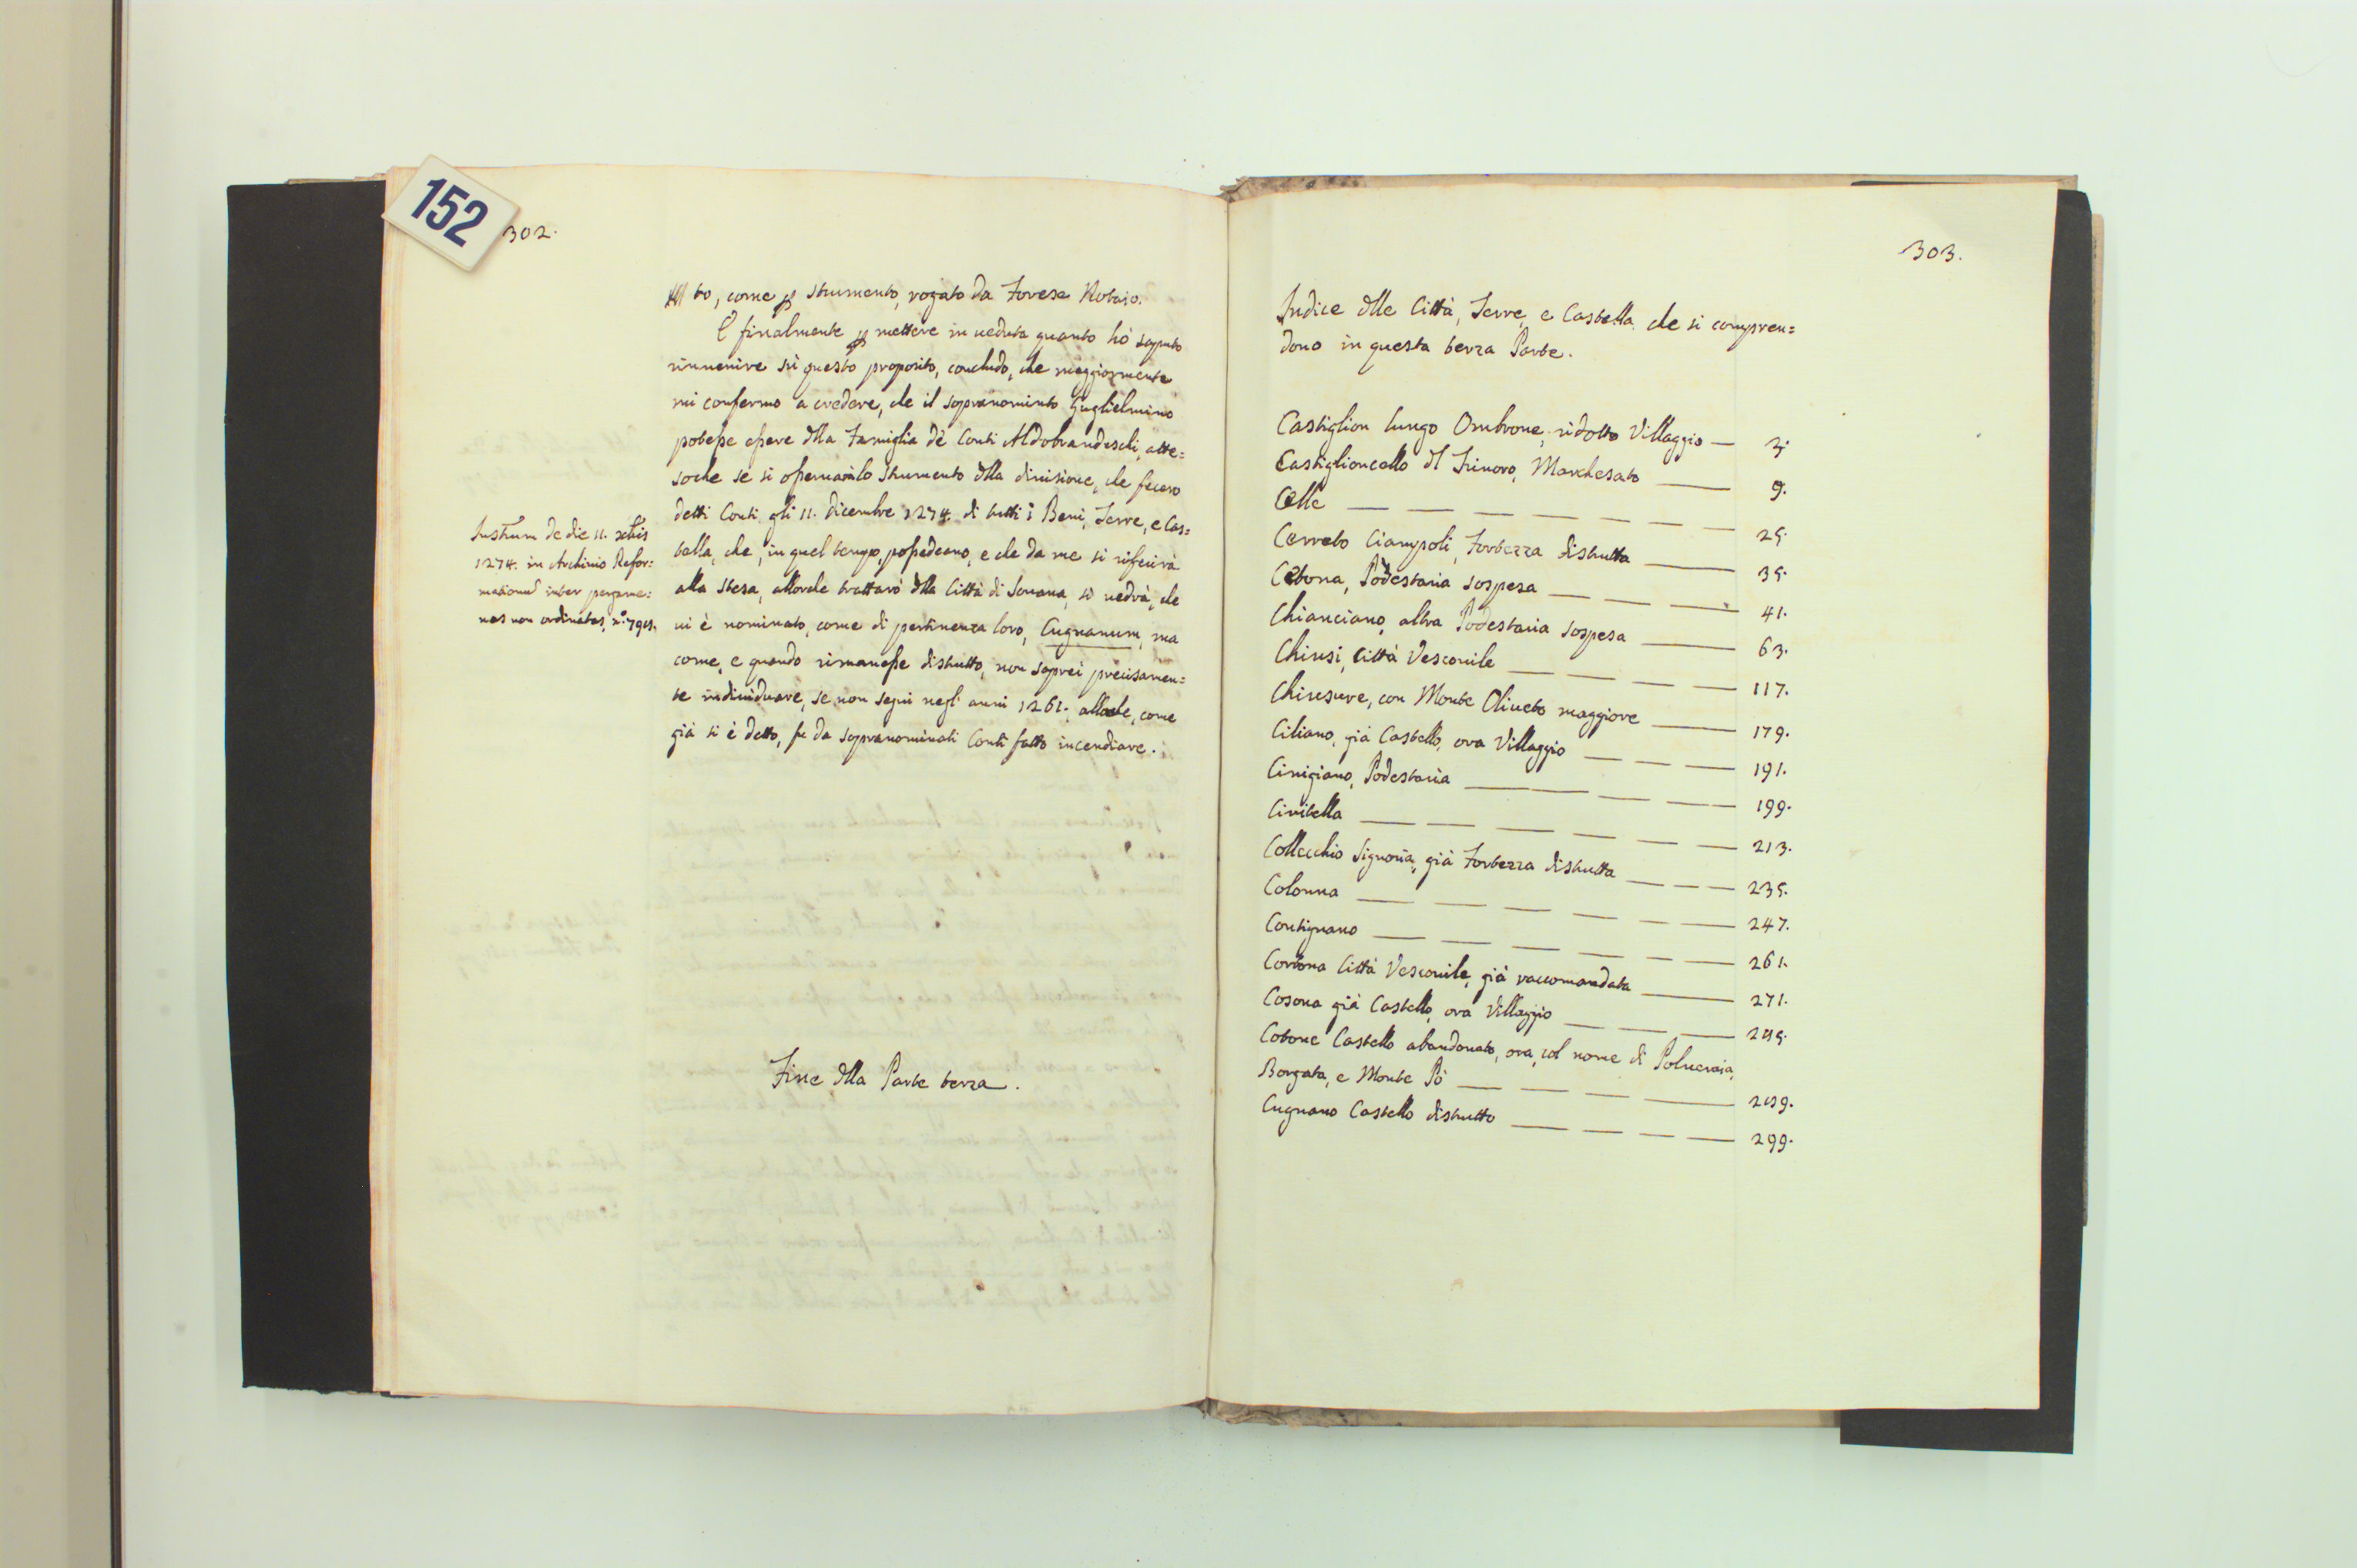 152
302.
to, come p strumento, rogato da Forese Notaio.
E finalmente p mettere in ueduta quanto hò saputo
rinuenire sù questo proposito, concludo, che maggiormente
mi confermo a credere, che il sopranominato Guglielmino
potesse essere dlla Famiglia dè Conti Aldobrandeschi, atte=
soche se si osseruarà lo strumento dlla diuisione, che fecero
detti Conti gli 11. Dicembre 1274. di tutti i Beni, Terre, e Cas=
tella, che, in quel tempo, possedeano, e che da me si riferirà
alla stesa, allorche trattarò dlla Città di Souana, si uedrà, che
ui è nominato, come di pertinenza loro, Cugnanum, ma
come, e quando rimanesse distrutto, non saprei precisamen=
te indiuiduare, se non seguì negl' anni 1261., allorche, come
già si è detto, fu da sopranominati Conti fatto incendiare.
Instrum de die 11. xbris
1274. in Archiuio Refor:
mationu inter pergame:
nas non ordinatas, n.º 795.
Fine dlla Parte terza.
303.
Indice dlle Città, Terre, e Castella che si compren=
dono in questa terza Parte.
Castiglion lungo Ombrone, ridotto Villaggio — 3.
Castiglioncello dl Trinoro, Marchesato — 9.
Celle — 25.
Cerreto Ciampoli, Fortezza distrutta — 35.
Cetona, Podestaria sospesa — 41.
Chianciano, altra Podestaria sospesa — 63.
Chiusi, Città Vescouile — 117.
Chiusure, con Monte Oliueto maggiore — 179.
Ciliano, già Castello, ora Villaggio — 191.
Cinigiano, Podestaria — 199.
Ciuitella — 213.
Collecchio Signoria, già Fortezza distrutta — 235.
Colonna — 247.
Contignano — 261.
Cortona Città Vescouile, già raccomandata — 271.
Cosona già Castello, ora Villaggio — 285.
Cotone Castello abandonato, ora, col nome di Polueraia,
Borgata, e Monte Pò — 289.
Cugnano Castello distrutto — 299.